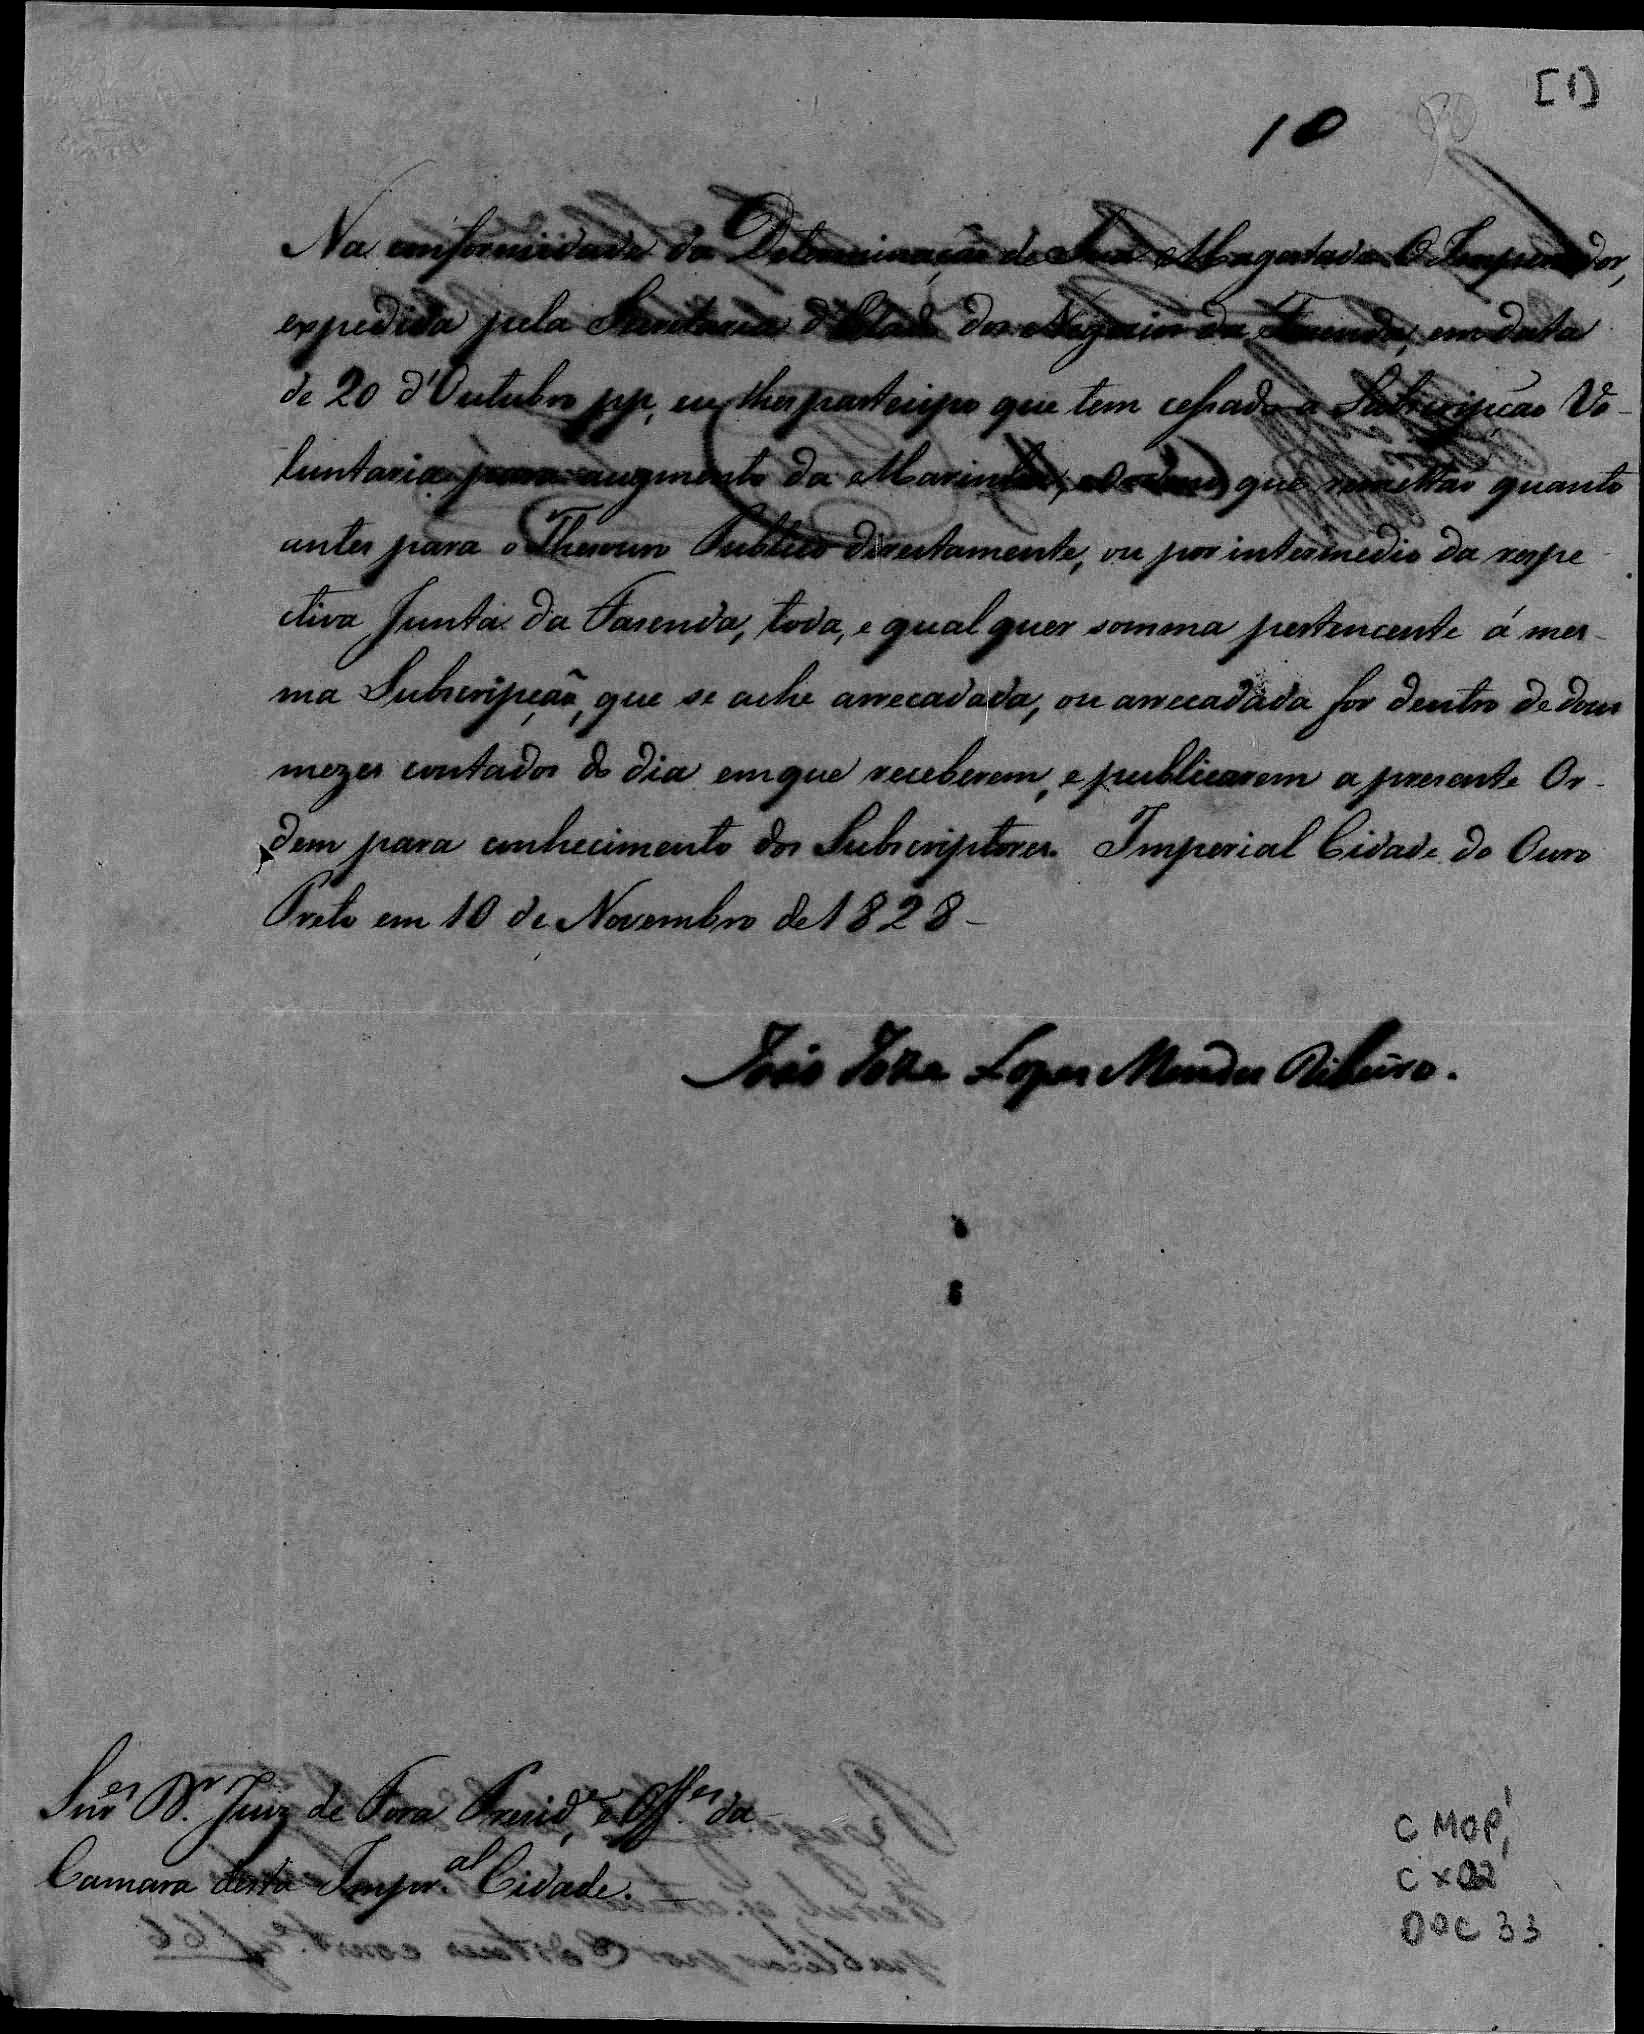 [1]
10
Na conformidade da Determinação de Sua Magestade O Imperador,
expedida pela Secretaria d'Estado dos Negocios da Fazenda, em data
de 20 d'Outubro pp, eu lhes participo que tem cessado a Subscripção Vo-
luntaria para augmento da Marinha, e ordeno que remettão quanto
antes para o Thesouro Publico directamente, ou por intermedio da respe
ctiva Junta da Fasenda, toda, e qual quer somma pertencente á mes-
ma Subscripção, que se ache arrecadada, ou arrecadada for dentro de dous
mezes contados do dia em que receberem, e publicarem a presente Or-
dem para conhecimento dos Subscriptores. Imperial Cidade do Ouro
Preto em 10 de Novembro de 1828-
João Joze Lopes Mendes Ribeiro.
Snr.es Dr. Juiz de Fora Presid.e, e Off.es da
Camara desta Imper.al Cidade.
CMOP
Cx 02
DOC 33